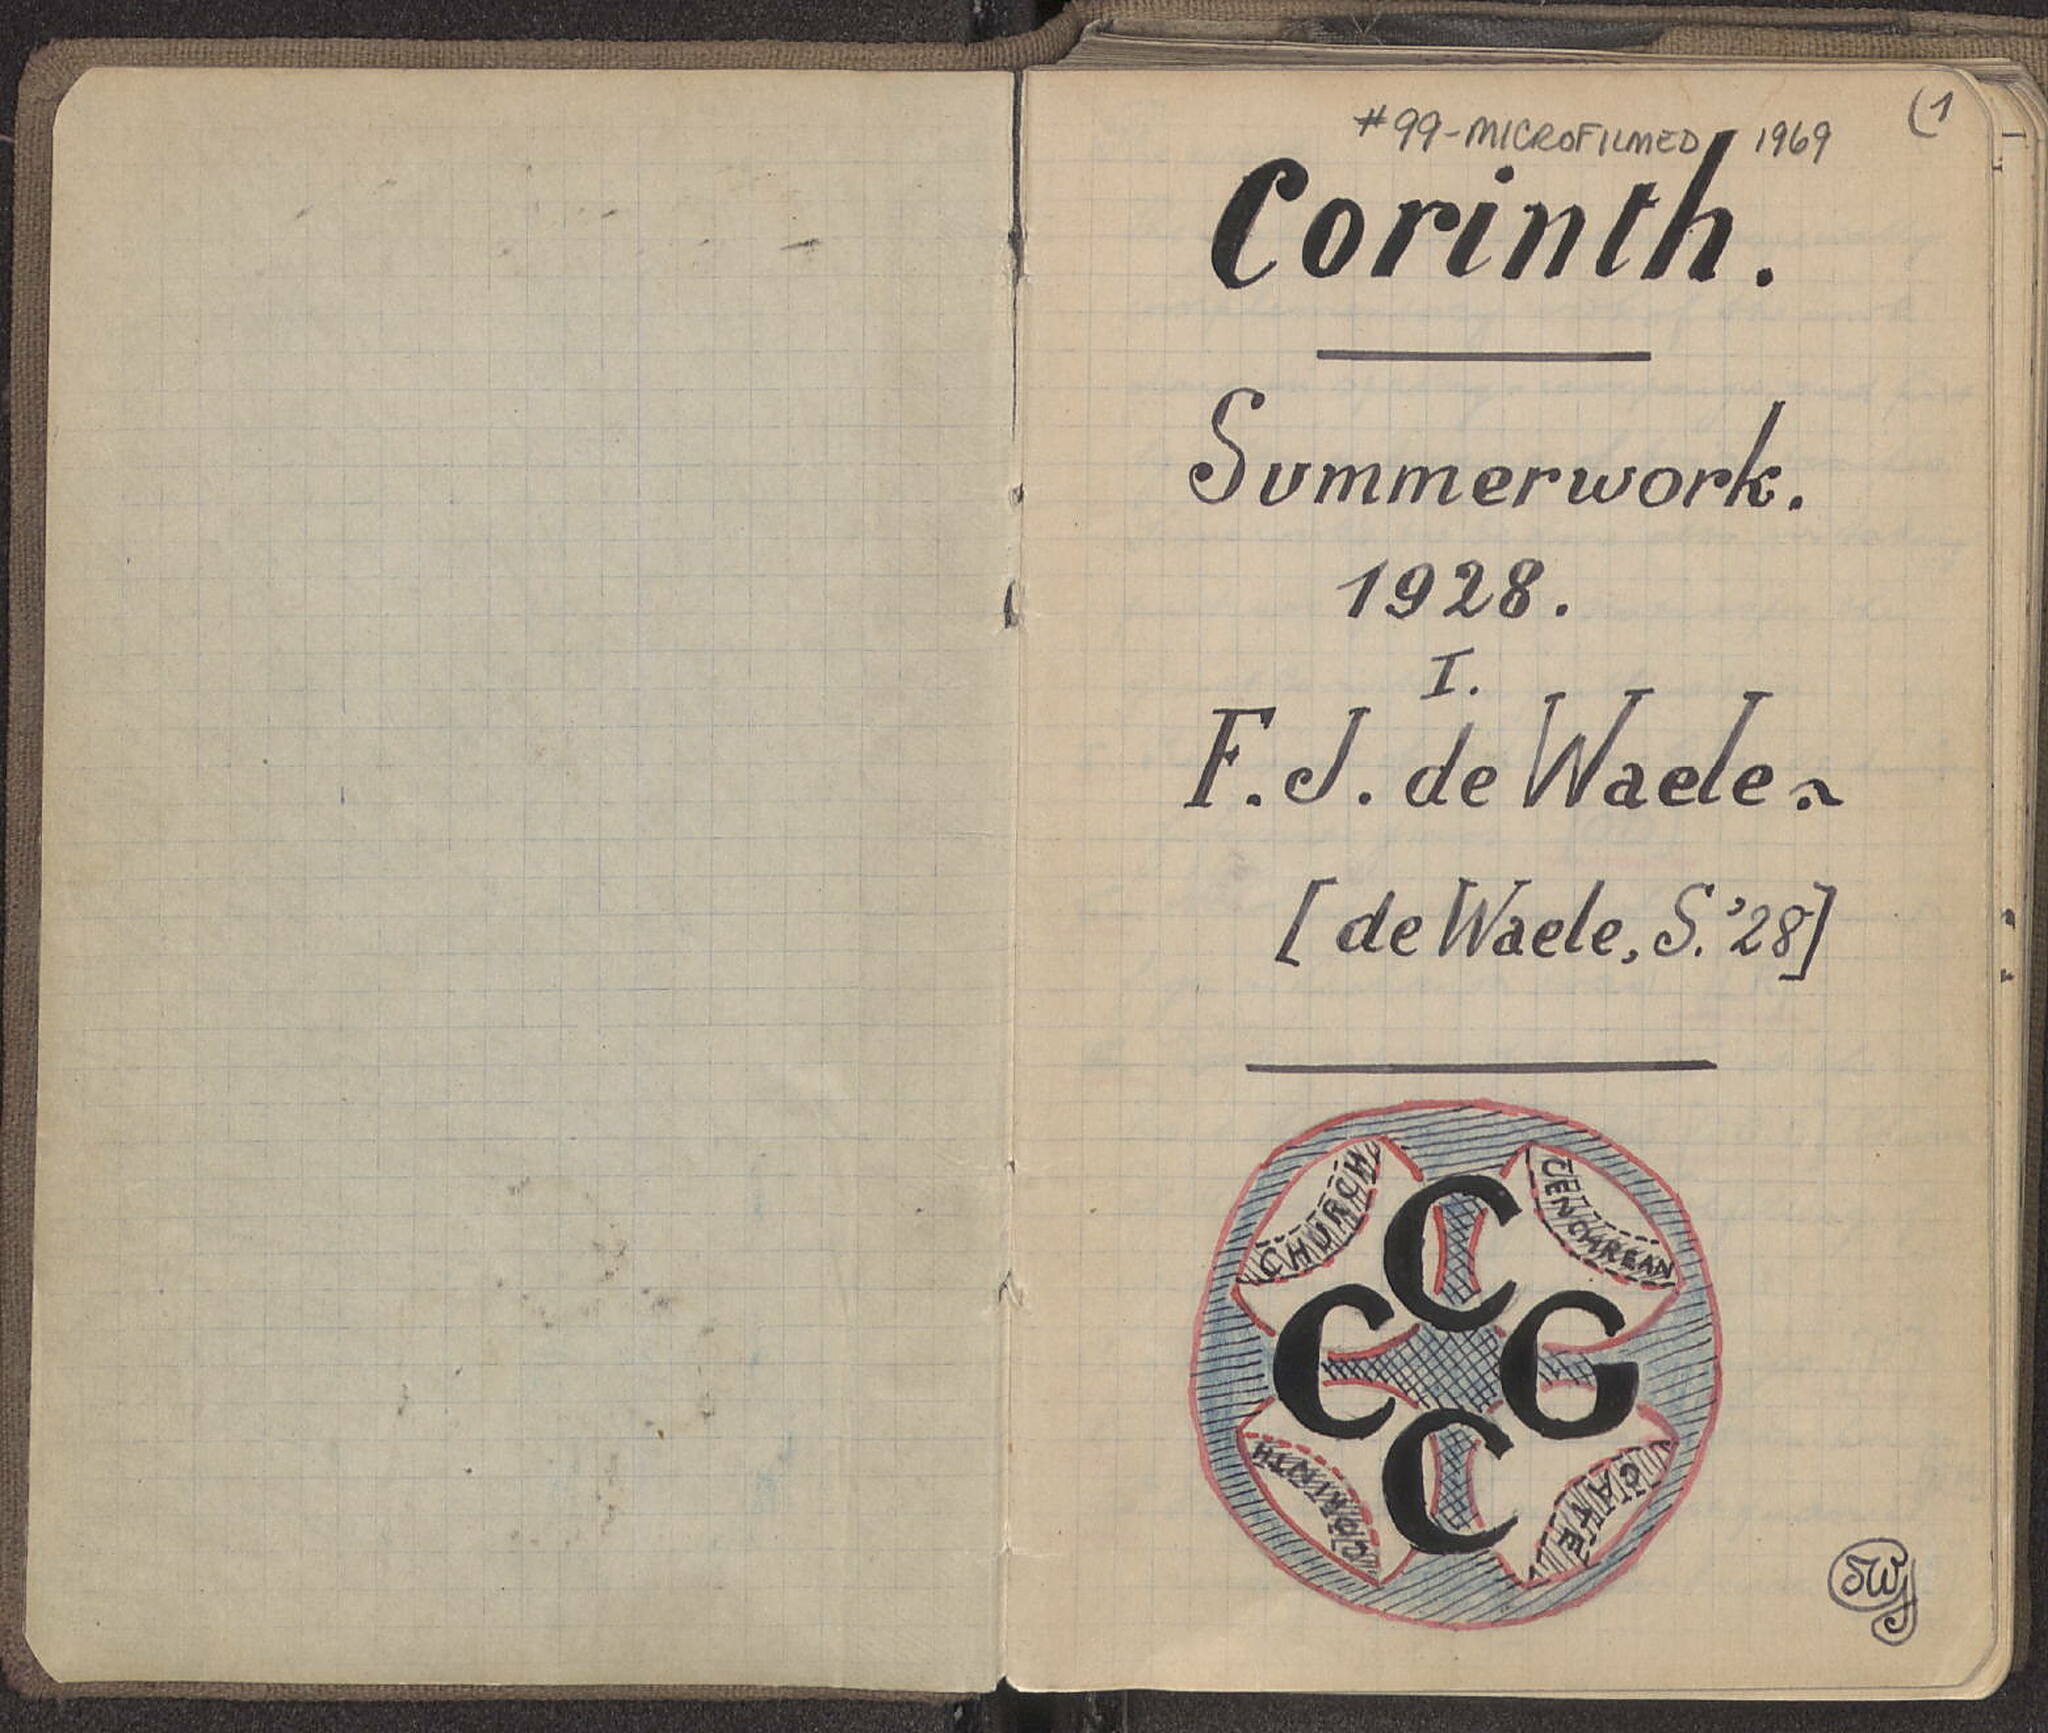 (1
#99-MICROFILMED 1969
Corinth.
Summerwork.
1928.
I.
F. J. de Waele.
[de Waele, S.'28]
CHURCH
CENCHREAN
C
C G
C
CORINTH
GATE